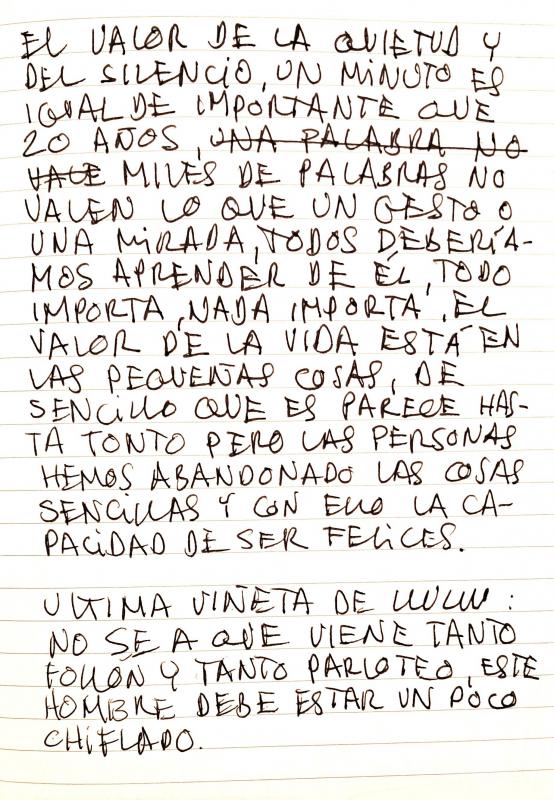 EL VALOR DE LA QUIETUD Y
DEL SILENCIO, UN MINUTO ES
IGUAL DE IMPORTANTE QUE
20 AÑOS, UNA PALABRA NO
VALE MILES DE PALABRAS NO
VALEN LO QUE UN GESTO O
UNA MIRADA, TODOS DEBERÍA-
MOS APRENDER DE ÉL, TODO
IMPORTA, NADA IMPORTA, EL
VALOR DE LA VIDA ESTÁ EN
LAS PEQUEÑAS COSAS, DE
SENCILLO QUE ES PARECE HAS-
TA TONTO PERO LAS PERSONAS
HEMOS ABANDONADO LAS COSAS
SENCILLAS Y CON ELLO LA CA-
PACIDAD DE SER FELICES.
ULTIMA VIÑETA DE LULU:
NO SÉ A QUE VIENE TANTO
FOLLÓN Y TANTO PARLOTEO, ESTE
HOMBRE DEBE ESTAR UN POCO
CHIFLADO.